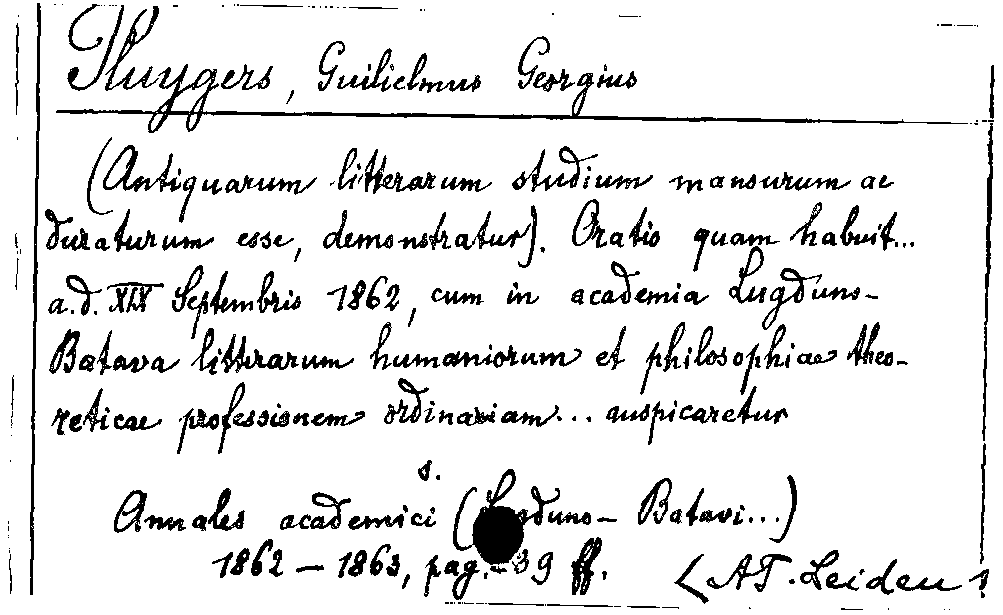 Pluygers, Guilielmus Georgius
(Antiquarum litterarum studium mansurum ac
duraturum esse, demonstratur). Oratio quam habuit...
a.d. XIX Septembris 1862, cum in academia Lugduno-
Batava litterarum humaniorum et philosophiae theo-
reticae professionem ordinariam... auspicaretur
s.
Annales academici (Lugduno-Batavi...)
1862 - 1863, pag. 39 ff.
< AT. Leiden